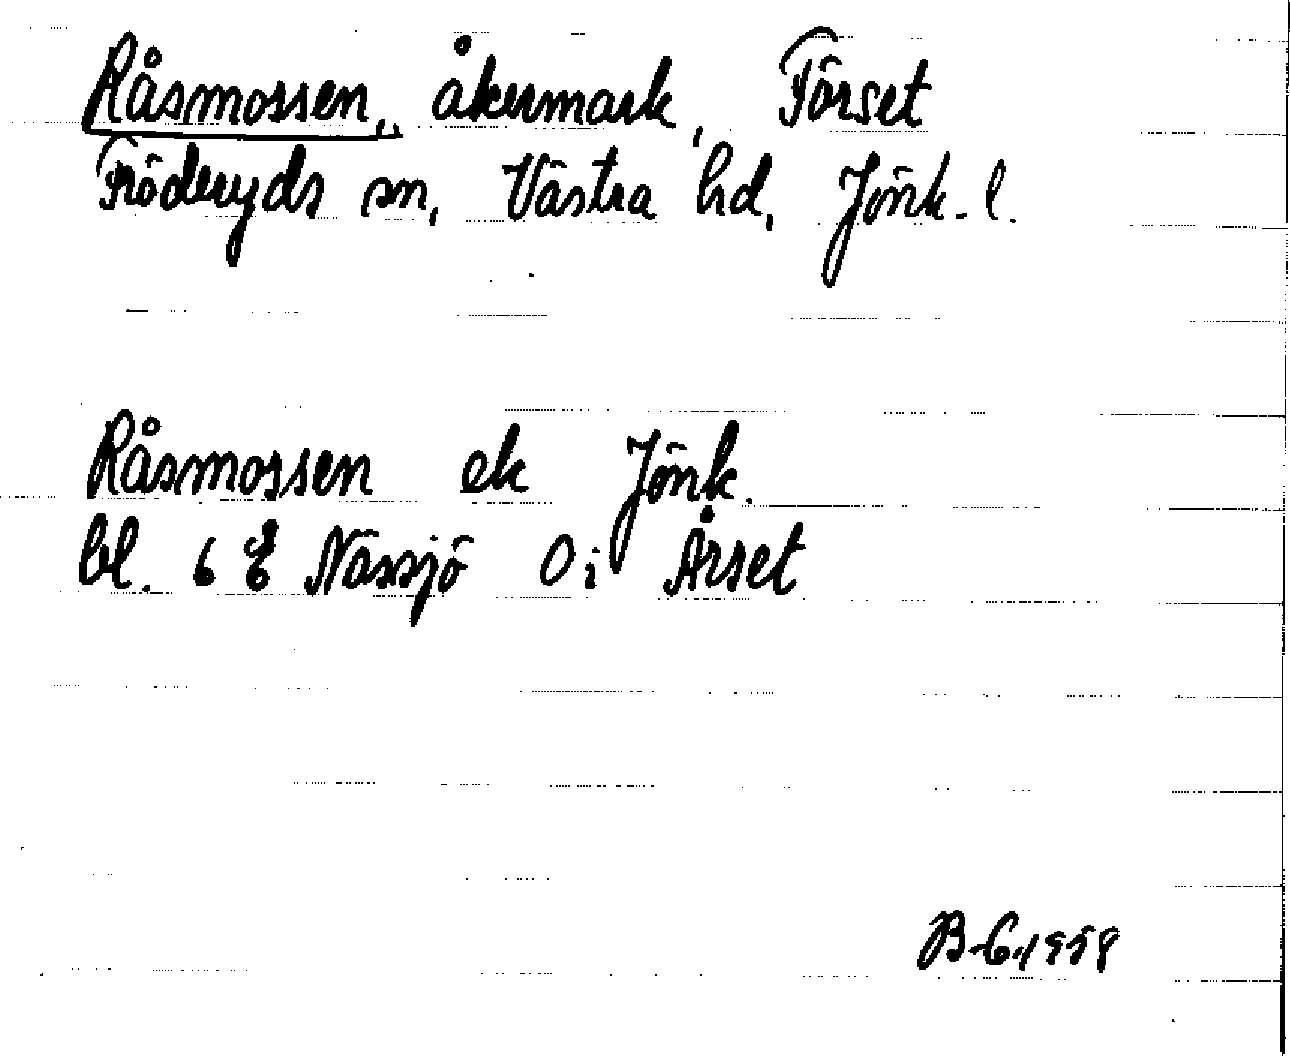 Råsmossen, åkermark, Förset
Fröderyds sn, Västra hd, Jönk. l.
Råsmossen ek Jönk.
bl. 6 Nässjö Årset
B-G 1958